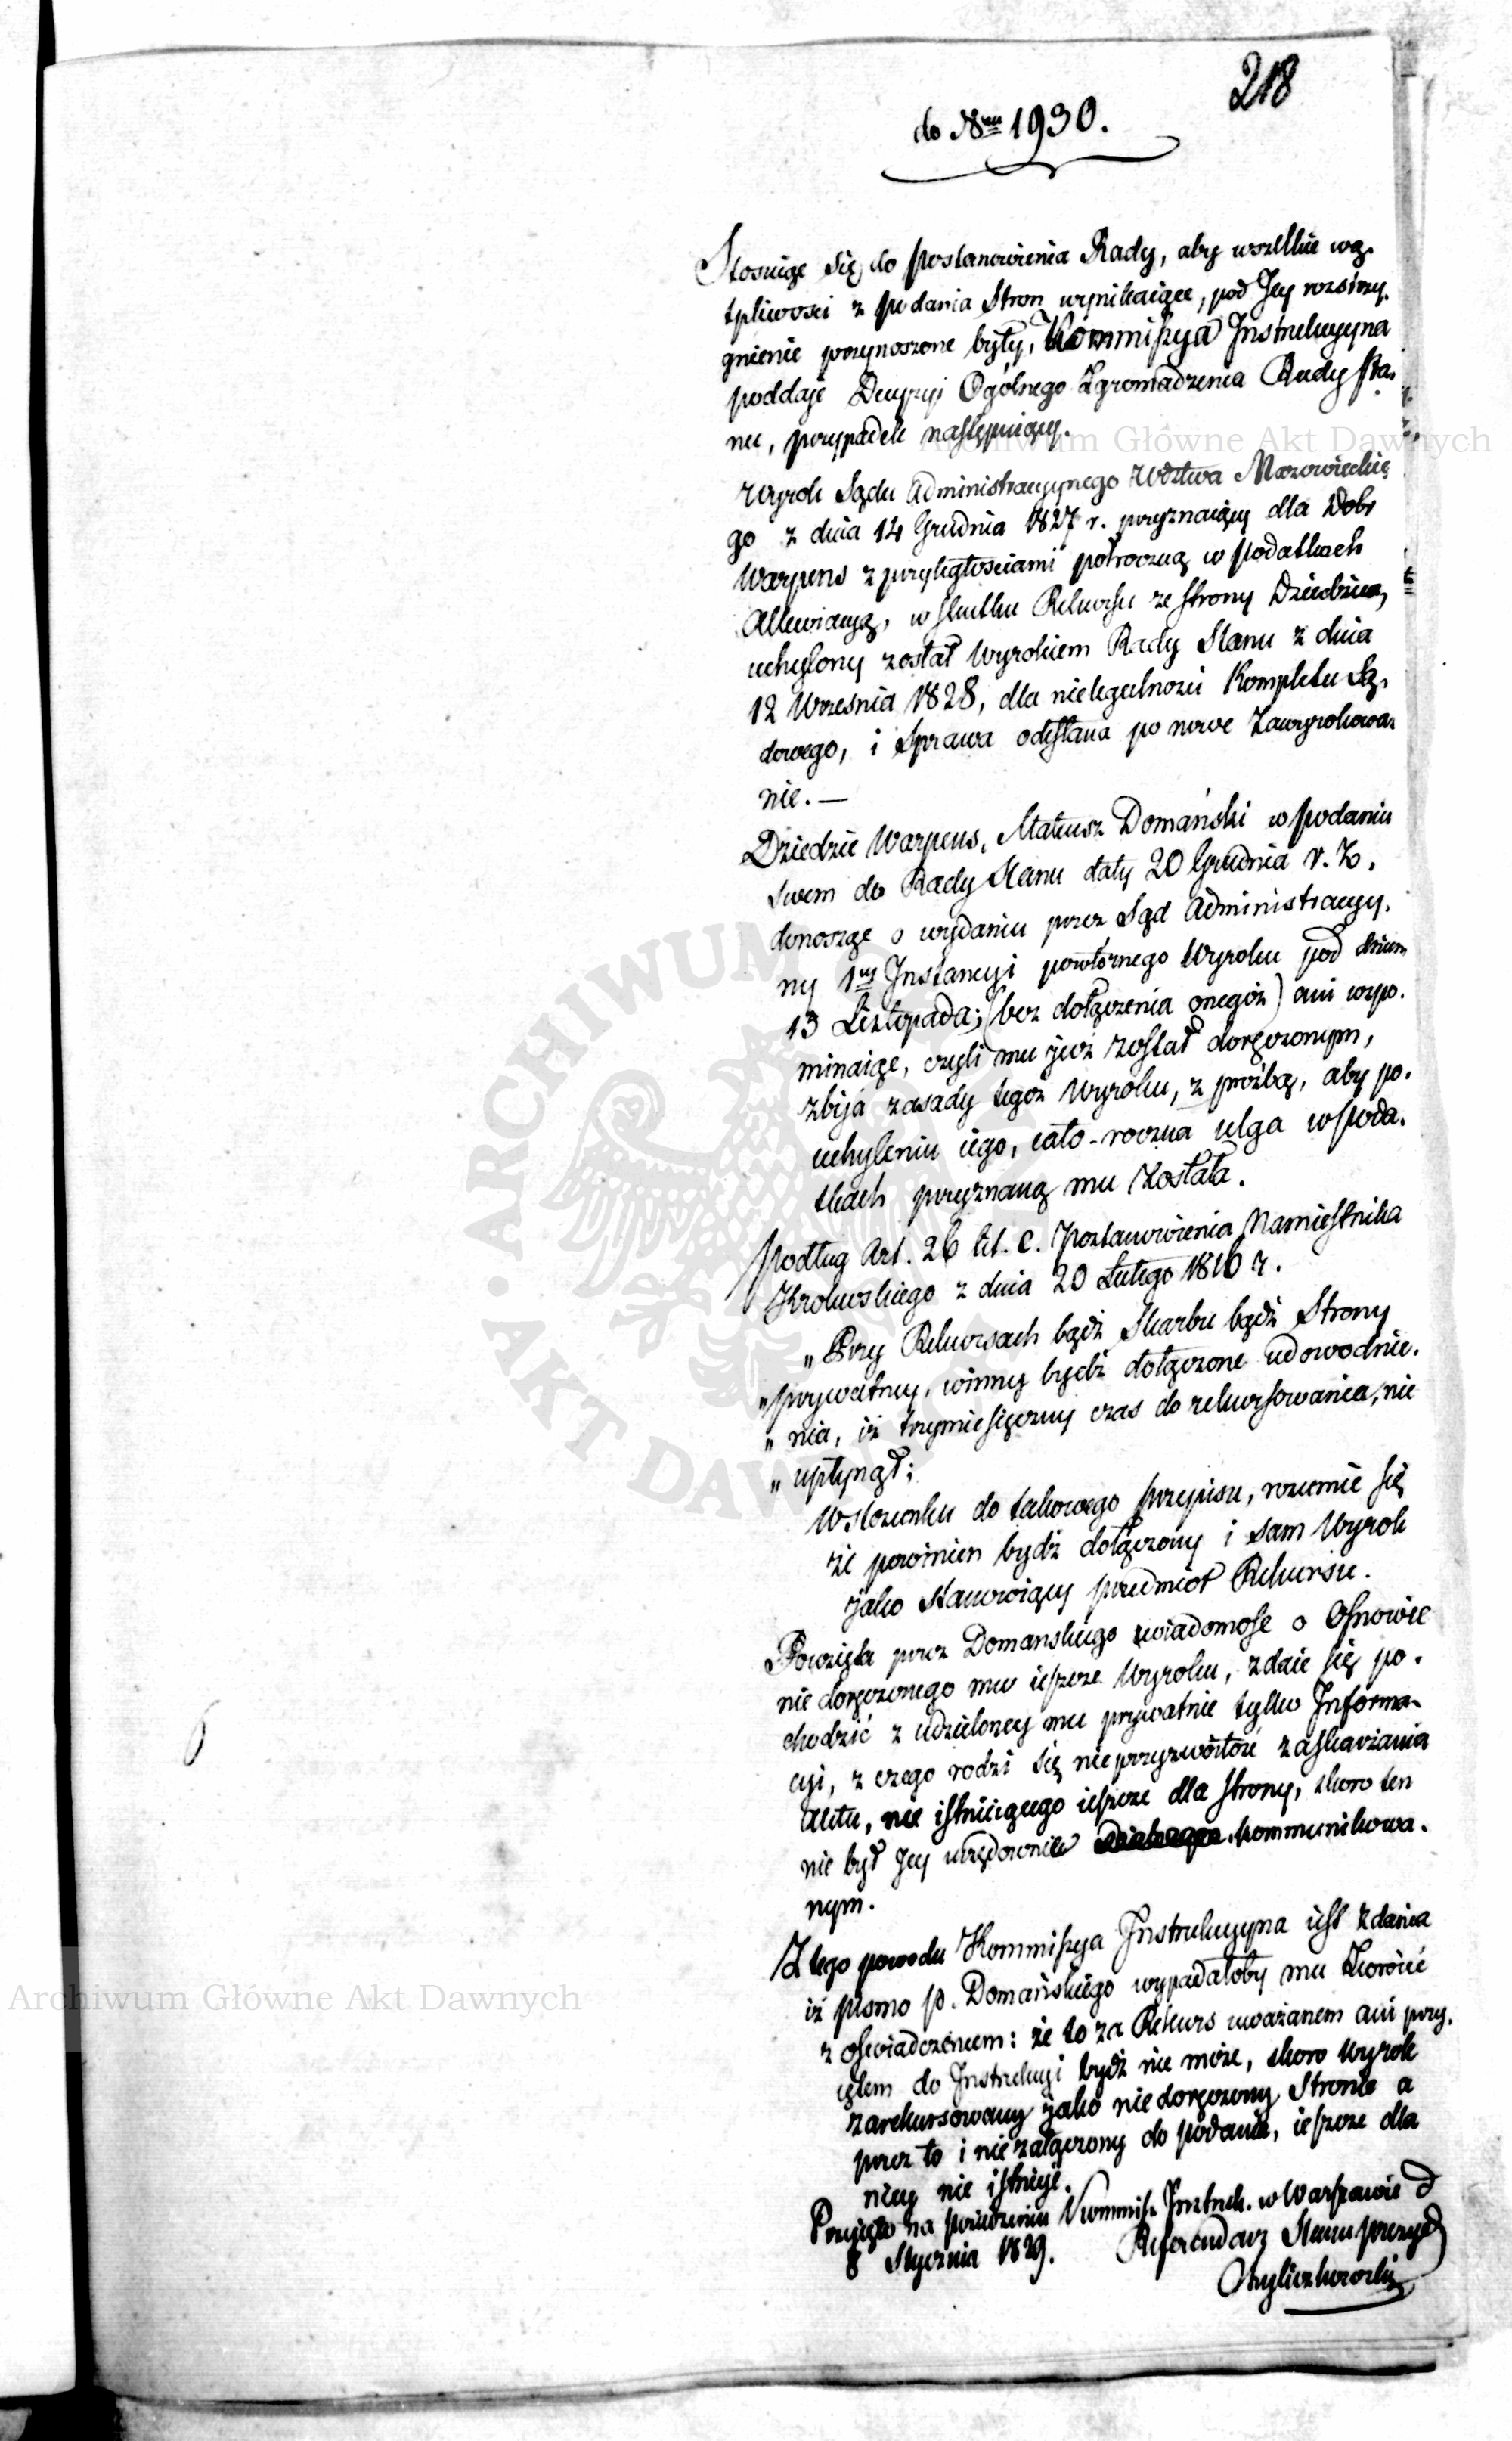 218
do Nru 1930.
Stosując się do postanowienia Rady, aby wszelkie wą-
tpliwości z podania Stron wynikaiące, pod Jey rozstrzy-
gnienie przynoszone były, Kommissya Instrukcyyna
poddaje Decyzyi Ogólnego Zgromadzenia Rady Sta-
nu, przypadek następuiący.
Wyrok Sądu Administracyynego Wdztwa Mazowieckie-
go z dnia 14 Grudnia 1827 r. przyznaiący dla Dobr
Warpens z przyległościami półroczną w podatkach
Allewiacyą, w skutku Rekursu ze strony Dziedzica,
uchylony został Wyrokiem Rady Stanu z dnia
12 Wrzesnia 1828, dla nielegalnozci Kompletu Są-
dowego, i Sprawa odesłana po nowe Zawyrokowa-
nie. —
Dziedzic Warpens, Mateusz Domański w podaniu
swem do Rady Stanu daty 20 Grudnia r. z.
donosząc o wydaniu przez Sąd Administracyy-
ny 1ey Instancyi powtórnego Wyroku pod dniem
13 Listopada; (bez dołączenia onegóz) ani wspo-
minaiąc, czyli mu juz został doręczonym,
zbija zasady tegoz Wyroku, z prożbą, aby po
uchyleniu iego, cało-roczna ulga w poda-
tkach przyznaną mu została.
Podług Art. 26 lit. c. Postanowienia Namiestnika
Krolewskiego z dnia 20 Lutego 1816 r.
„ Przy Rekursach bądź Skarbu bądź Strony
„ prywatney, winny bydź dołączone udowodnie-
„ nia, iż trzymiesięczny czas do rekursowania, nie
„ upłynął;
W stosunku do takowego przepisu, rozumie się
że powinien bydź dołączony i sam Wyrok
jako stanowiący przedmiot Rekursu.
Powzięta przez Domanskiego wiadomość o Osnowie
nie doręczonego mu ieszcze Wyroku, zdaie się po-
chodzić z udzieloney mu prywatnie tylko Informa-
cyi, z czego rodzi się nieprzyzwóitość zaskarżania
Aktu, nie istnieiącego ieszcze dla strony, skoro ten
nie był Jey urzędownie kommunikowa-
nym.
Z tego powodu Kommissya Instrukcyyna iest zdania
iż pismo p. Domańskiego wypadałoby mu Zwrócić
z oświadczeniem: że to za Rekurs uważanem ani przy-
iętem do Instrukcyi bydź nie może, skoro Wyrok
zarekursowany jako nie doręczony Stronie a
przez to i nie załączony do podania, ieszcze dla
niey nie istnieje.
Przyięto na posiedzeniu Kommiss. Instruk. w Warszawie d
8 Stycznia 1829. Referendarz Stanu prezyd
Archiwum Główne Akt Dawnych
Archiwum Główne Akt Dawnych
ARCHIWUM
AKT DAWNYCH